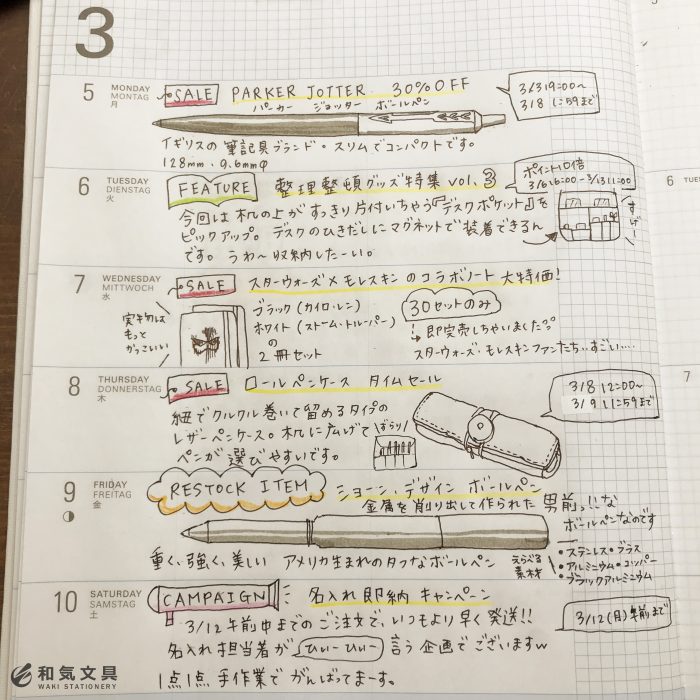 3
5 MONDAY MONTAG 月
SALE PARKER JOTTER 30%OFF
パーカー ジョッター ボールペン
3/8 11:59まで
イギリスの筆記具ブランド。スリムでコンパクトです。
128mm、9.6mmφ
6 TUESDAY DIENSTAG 火
FEATURE 整理整頓グッズ特集 vol.3
ポイント10倍
3/6 16:00~3/13 11:00
今回は机の上がすっきり片付いちゃう『デスクポケット』を
ピックアップ。デスクのひきだしにマグネットで装着できるん
です。うわ~収納したーい。
すげー
7 WEDNESDAY MITTWOCH 水
SALE スターウォーズ×モレスキンのコラボノート 大特価!
実物は
もっと
かっこいい
ブラック(カイロ・レン)
ホワイト(ストーム・トルーパー)
の
2冊セット
30セットのみ
即完売しちゃいました
スターウォーズ・モレスキンファンたち‥すごい‥‥
8 THURSDAY DONNERSTAG 木
SALE ロールペンケース タイムセール
3/8 12:00~
3/9 11:59まで
紐でクルクル巻いて留めるタイプの
レザーペンケース。机に広げて
ペンが選びやすいです。
ずらり!
9 FRIDAY FREITAG 金
RESTOCK ITEM ショーン・デザイン ボールペン
金属を削り出して作られた 男前っ!!な
ボールペンなのです
重く、強く、美しい アメリカ生まれのタフなボールペン
えらべる
素材
・ステンレス・ブラス
・アルミニウム・コッパー
・ブラックアルミニウム
10 SATURDAY SAMSTAG 土
CAMPAIGN 名入れ即納キャンペーン
3/12(月)午前まで
3/12午前中までのご注文で、いつもより早く発送!!
名入れ担当者が ひぃーひぃー 言う企画でございますw
1点1点 手作業で がんばってまーす。
和気文具
WAKI STATIONERY
5
6 T
7